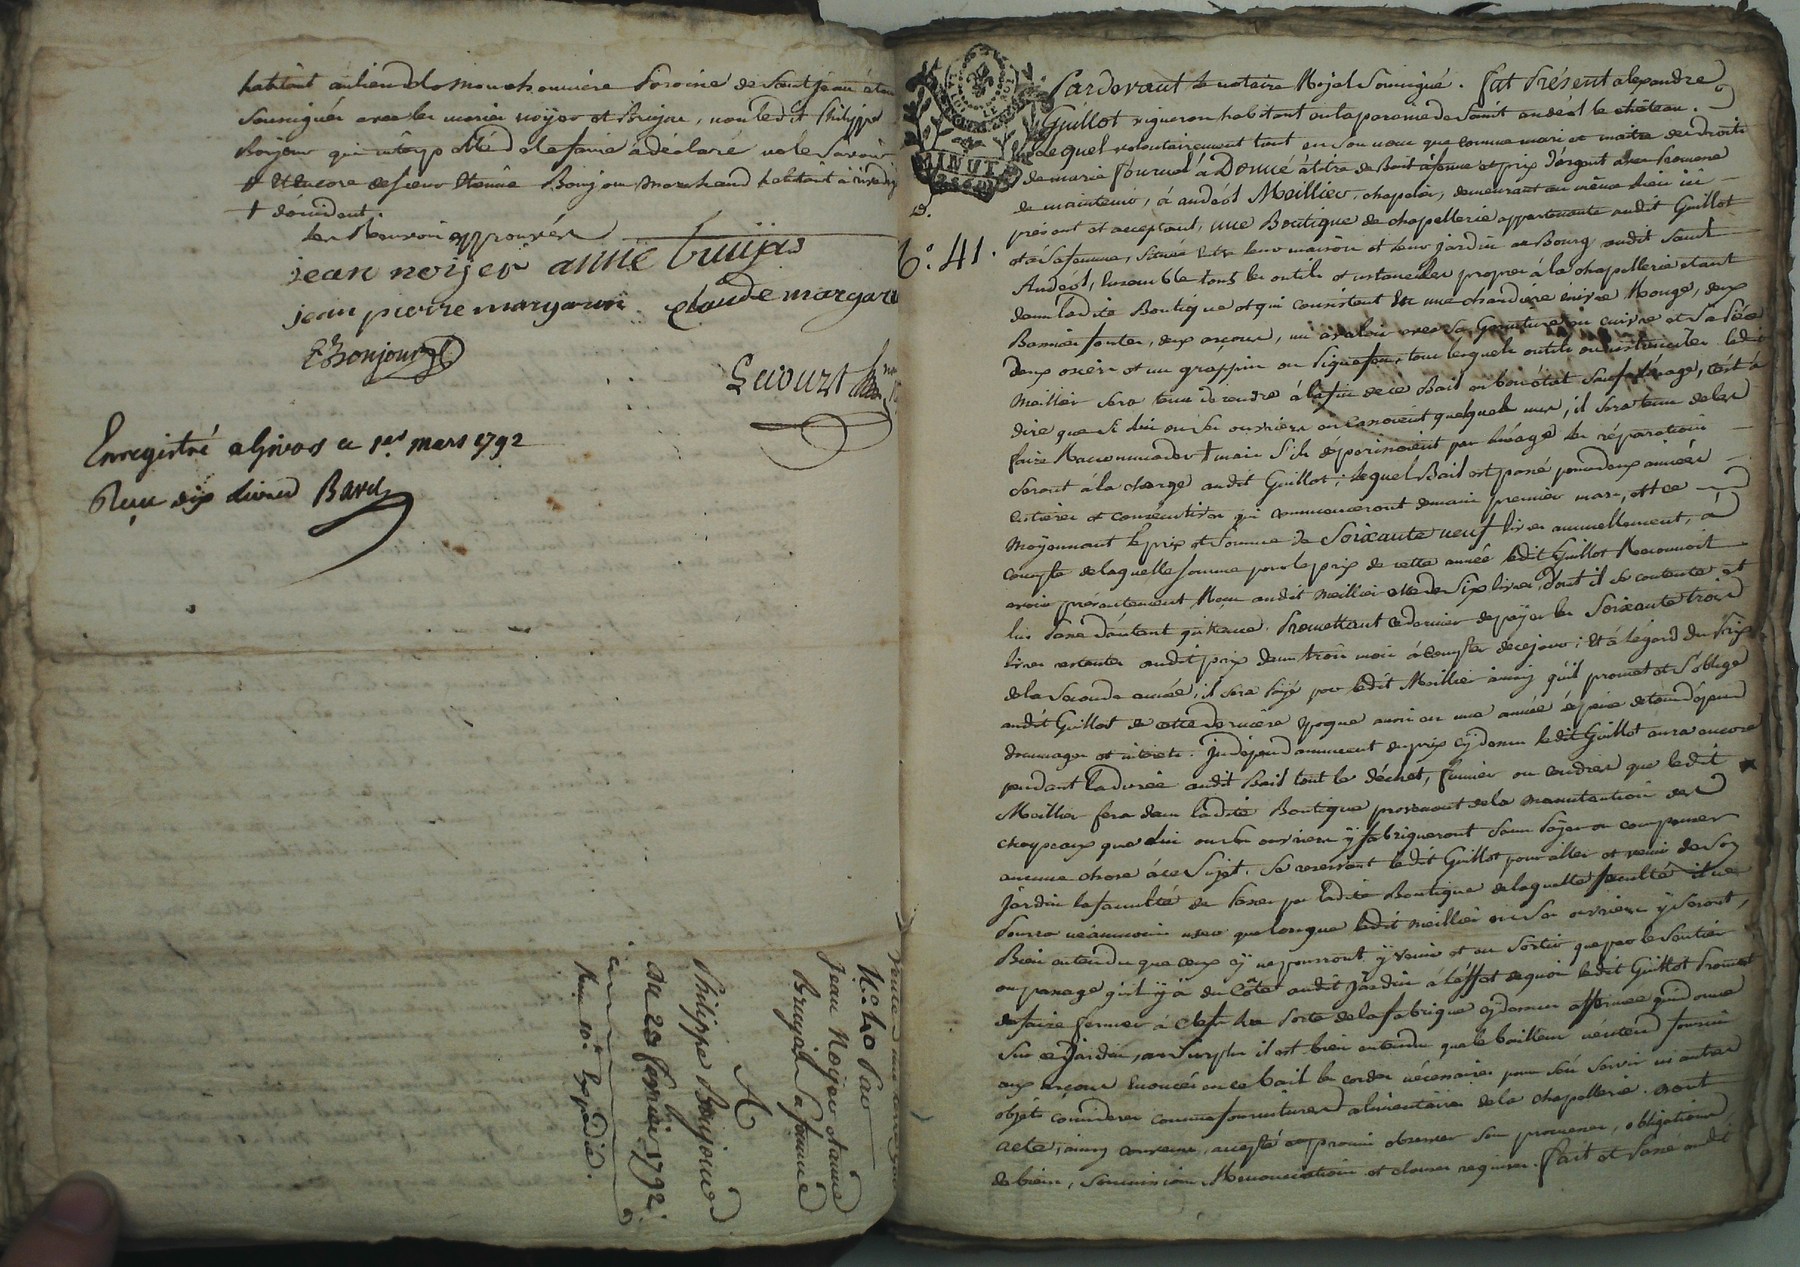 habitant au lieu de la mouchonnière Paroisse de Saint jean
Soussignés avec les mariés noÿer et Brujas, non ledit Philippe
Bonjour qui interp déllé de le faire a déclaré ne le Savoir
Et Encore de Sieur Etienne Bonjour Marchand habitant à
les Renvois approuvés
jean noijer anne brujas
jean pierre margaron claude margaron
E Bonjour
Enregistré a Givors ce 1er mars 1792
Reçu dix livres
N.º 40 Par
Jean Noÿer et anne
Brujas Sa femme
A
Philippe Bonjour
du 28 février 1792
Reçu 10s Expédié.
MINUT
N.º 41.
Pardevant le notaire Royal Soussigné. fut Présent alexandre
Guillot vigneron habitant en la paroisse de Saint andéol le château.
Lequel volontairement tant en Son nom que comme mari et maitre des droits
de marie fournel à Donné à titre de Bail à ferme et prix d'argent avec Promesse
de maintenir, à andéol Meillier, chapelier, demeurant au même lieu ici
présent et acceptant, une Boutique de chapellerie appartenante audit Guillot
et à Sa femme, Située entre leur maison et leur jardin au Bourg dudit Saint
Andéol, Ensemble tous les outils et ustenciles propres à la chapellerie etant
dans ladite Boutique et qui consistent En une chaudière cuivre Rouge, deux
Bassins fontes, deux arçons, un
deux osiers et un grappin ou tous lesquels outils ou ustenciles ledit
Meillier Sera tenu de rendre à la fin de ce Bail en bon état Sauf l'usage, c'est à
dire que Si lui ou Ses ouvriers en Cassoient quelques uns, il Sera tenu de les
faire Raccommoder mais S'ils dépérissoient par l'usage les réparations
Seront à la charge audit Guillot; lequel Bail est passé pour deux années
Entieres et consécutives qui commenceront demain premier mars, et ce
Moÿennant le prix et Somme de Soixante neuf livres annuellement, à
compte de laquelle Somme pour le prix de cette année ledit Guillot Reconnoit
avoir présentement Reçu dudit Meillier celle de Six livres, dont il Se contente et
lui Passe d'autant quittance. Promettant ce dernier de paÿer les Soixante trois
livres restantes dudit prix dans trois mois à compter de ce jour; Et à l'égard du Prix
de la Seconde année, il Sera Païé par ledit Meillier ainsi qu'il promet et S'oblige
audit Guillot de cette derniere Epoque aussi en une année à peine de tous dépens
dommages et intérêts. Indépendamment du prix cÿ dessus ledit Guillot aura encore
pendant la durée dudit Bail tout le déchet, fumier ou cendres que ledit
Meillier fera dans ladite Boutique provenant de la manutention des
chapeaux que lui ou Ses ouvriers ÿ fabriqueront Sans Paÿer ou compenser
aucune chose à ce Sujet. Se reservant ledit Guillot pour aller et venir de Son
Jardin la faculté de Passer par ladite Boutique de laquelle faculté il ne
Pourra néanmoins user que lorsque ledit Meillier ou Ses ouvriers ÿ Seront,
Bien entendu que ceux cÿ ne pourront ÿ venir et en Sortir que par le Sentier
ou passage qu'il ÿ a du Côté dudit Jardin à l'effet de quoi ledit Guillot Promet
de faire fermer à Clefs la Porte de la fabrique cÿ dessus affermée qui donne
Sur ce Jardin, au Surplus il est bien entendu que le bailleur n'entend fournir
aux arçons Enoncés en ce bail les cordes nécessaires pour S'en Servir ni autres
objets considerés comme fournitures alimentaires de la chapellerie. Dont
acte, ainsy convenu, accepté et promis observer Sous promesses, obligations
de biens, Soumissions, Renonciations et clauses requises. fait et Passé audit